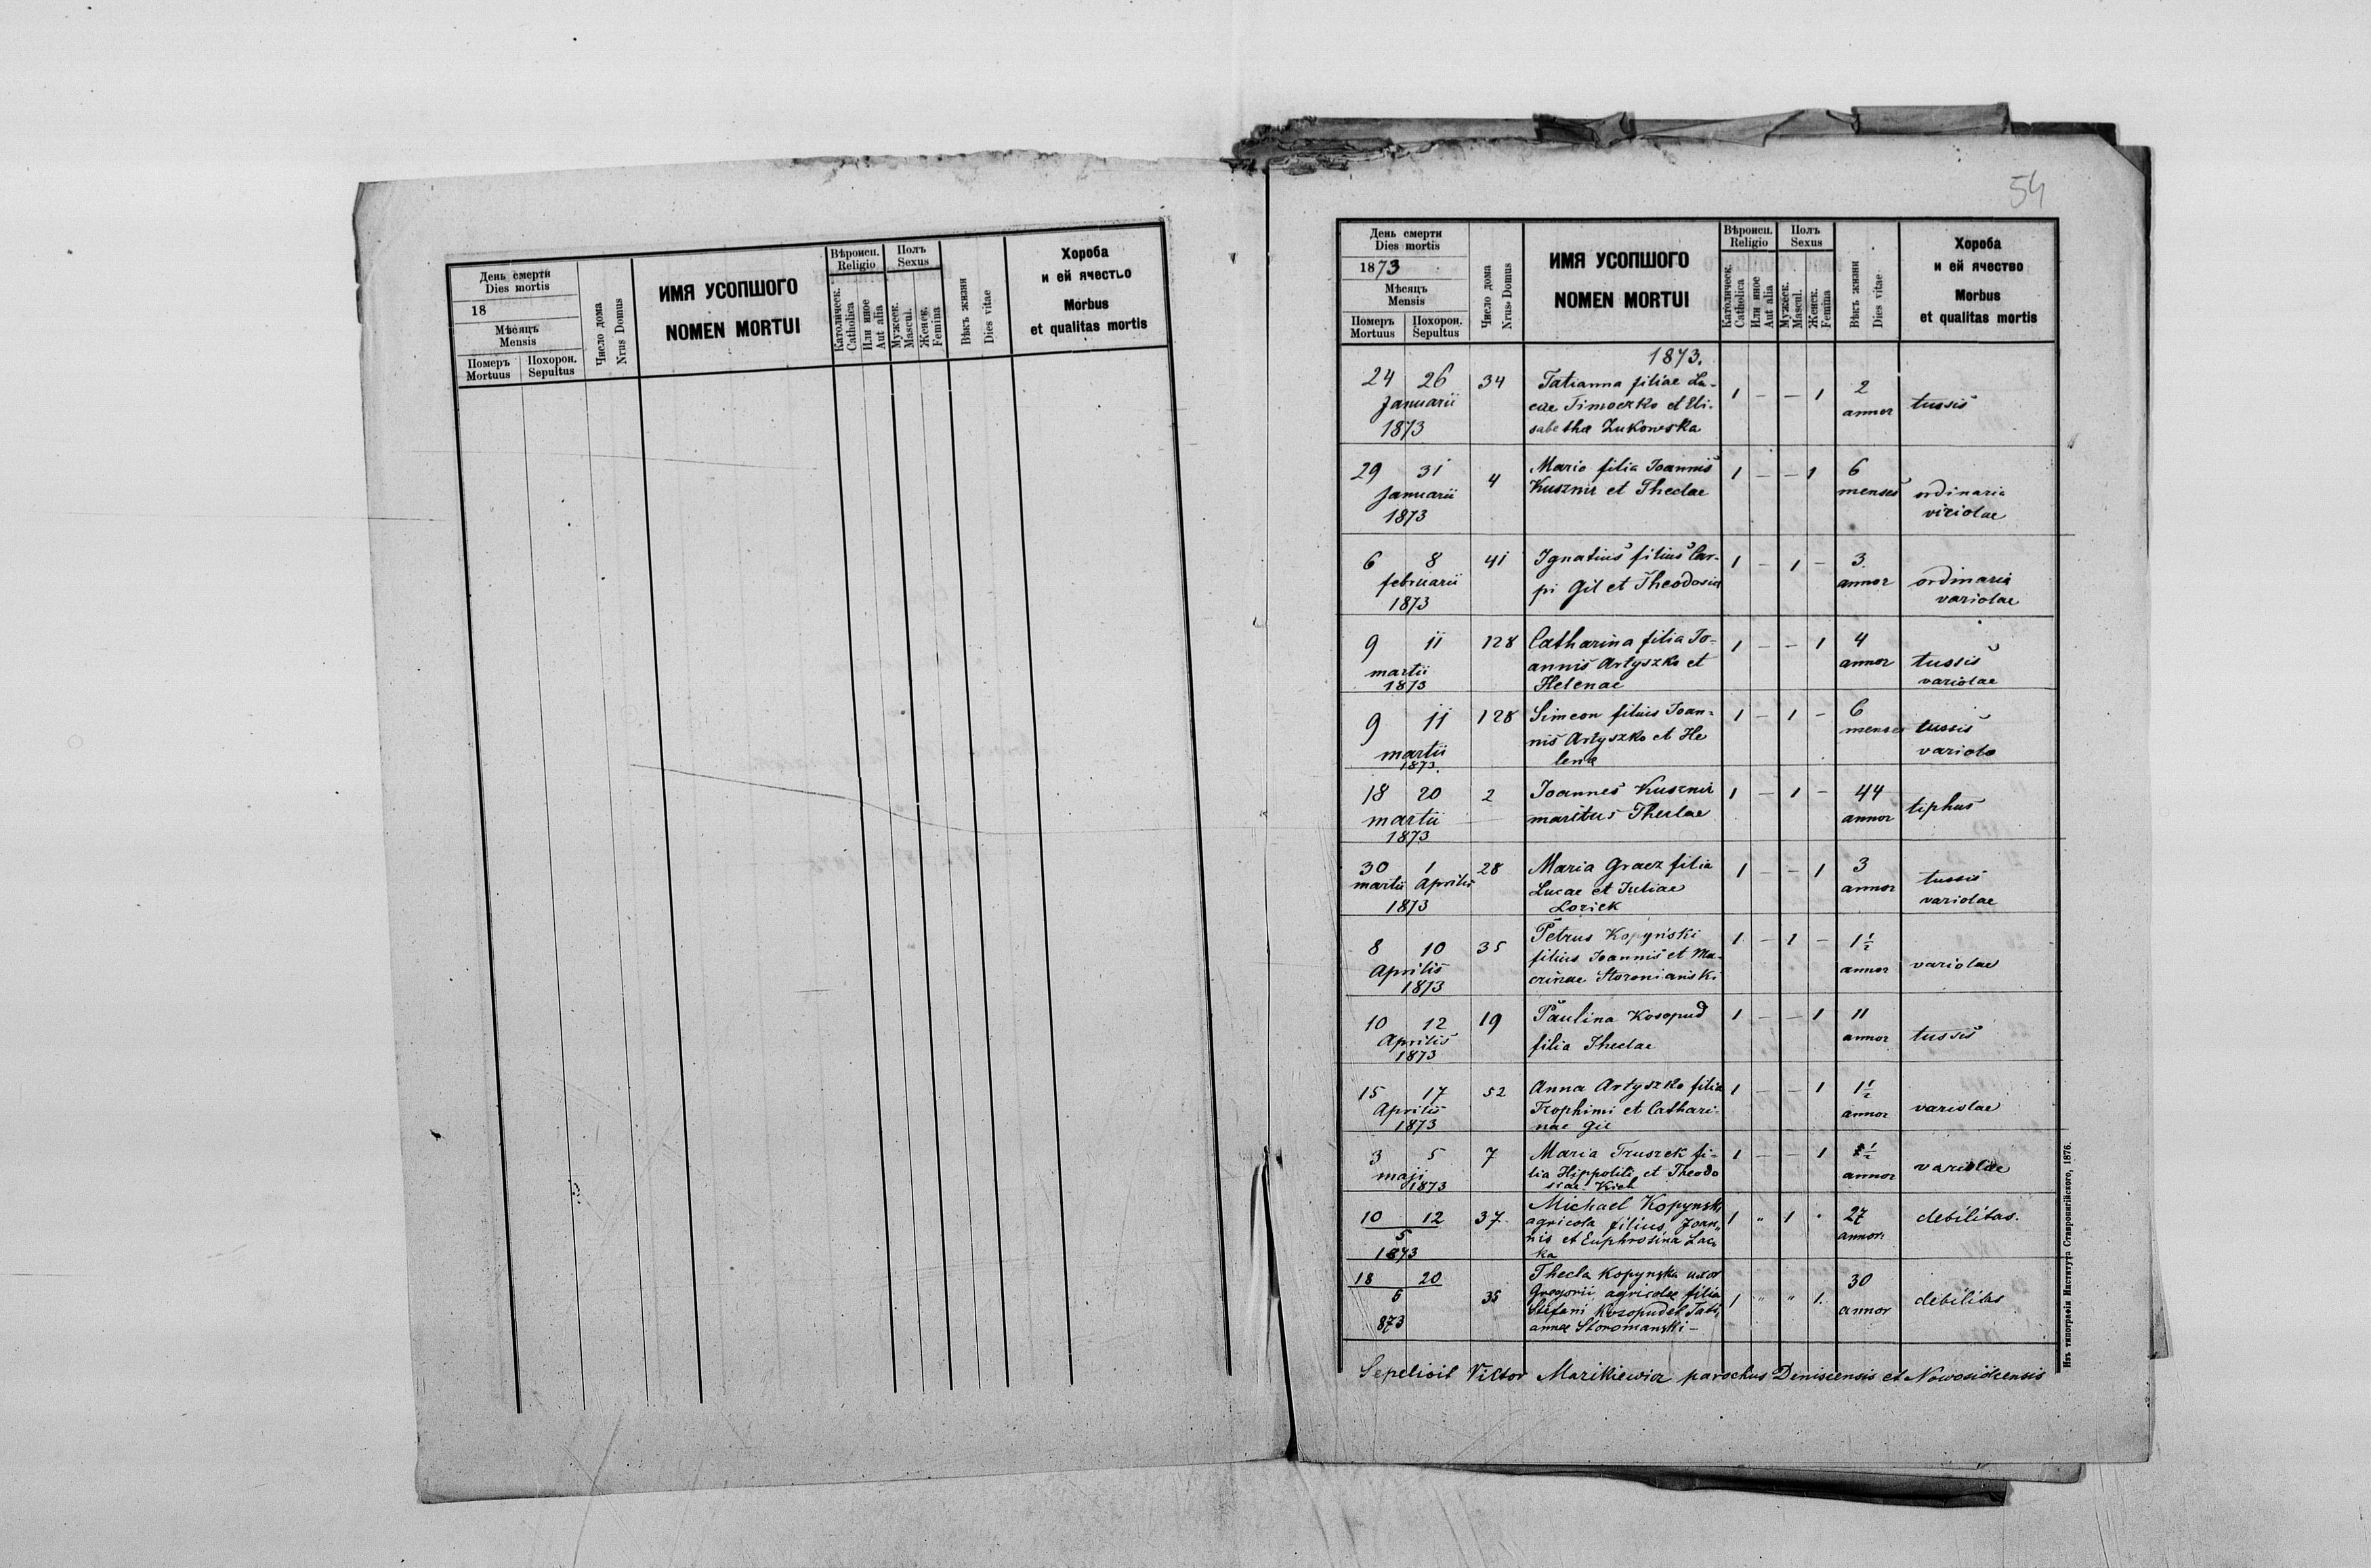 День смерти
Dies mortis
18
Мѣсяцъ
Mensis
Померъ Похорон.
Mortuus Sepultus
Число дома
Nrus Domus
ИМЯ УСОПШОГО
NOMEN MORTUI
Вѣроисп.
Religio
Католическ.
Catholica
Или иное
Aut alia
Полъ
Sexus
Мужеск.
Mascul.
Женск.
Femina
Вѣкъ жизни
Dies vitae
Хороба
и ей ячество
Morbus
et qualitas mortis
54
День смерти
Dies mortis
1873
Мѣсяцъ
Mensis
Померъ Похорон.
Mortuus Sepultus
Число дома
Nrus Domus
ИМЯ УСОПШОГО
NOMEN MORTUI
Вѣроисп.
Religio
Католическ.
Catholica
Или иное
Aut alia
Полъ
Sexus
Мужеск.
Mascul.
Женск.
Femina
Вѣкъ жизни
Dies vitae
Хороба
и ей ячество
Morbus
et qualitas mortis
1873.
24 26 34 Tatianna filiae Lu- 1 – – 1 2
Januarii cae Timoczko et Eli- annor tussis
1873 sabetha Zukowska
29 31 4 Maria filia Joannis 1 – – 1 6
Januarii Kusznir et Theclae menses ordinaria
1873 viriolae
6 8 41 Ignatius filius Car- 1 – 1 – 3
februarii pi Gil et Theodosia annor ordinaria
1873 variolae
9 11 128 Catharina filia Jo- 1 – – 1 4
martii annis Artyszko et annor tussis
1873 Helenae variolae
9 11 128 Simeon filius Joan- 1 – 1 – 6
martii nis Artyszko et He menses tussis
1873. lena variola
18 20 2 Joannes Kusznir 1 – 1 – 44
martii maritus Theclae annor tiphus
1873
30 1 28 Maria Gracz filia 1 – – 1 3
martii Aprilis Lucae et Juliae annor tussis
1873 Lozick variolae
8 10 35 Petrus Kopyński 1 – 1 – 1½
Aprilis filius Joannis et Ma- annor variolae
1873 crinae Storonianski
10 12 19 Paulina Kosopud 1 – – 1 11
Aprilis filia Theclae annor tussis
1873
15 17 52 Anna Artyszko filia 1 – – 1 1½
Aprilis Trophimi et Cathari- annor variolae
1873 nae Gil
3 5 7 Maria Truszek fi- 1 – – 1 ½
maji lia Hippoliti et Theodo annor variolae
1873 siae
10 12 37 Michael Kopynski 1 " 1 " 27
5 agricola filius Joan- annor. debilitas.
1873 nis et Euphrosina Lac-
ka
18 20 35 Thecla Kopynska uxor 1 " " 1. 30
6 Gregorii agricolae filia annor debilitas
873 Stefani Kosopud et Tati
annae Storomanski –
Sepelivit Victor Marikiewicz parochus Denisiensis et Nowosidcensis
Изъ типографіи Института Ставропигійского, 1876.